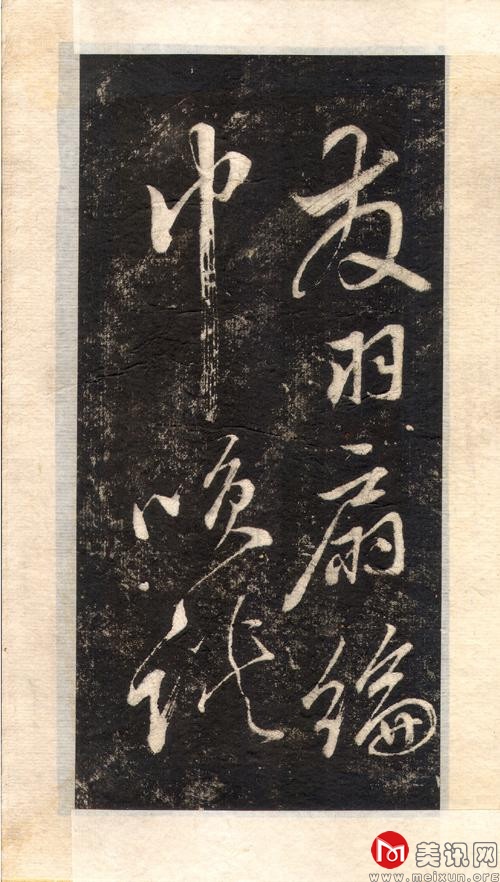 發羽扇綸
巾咲談
美讯网
www.meixun.org